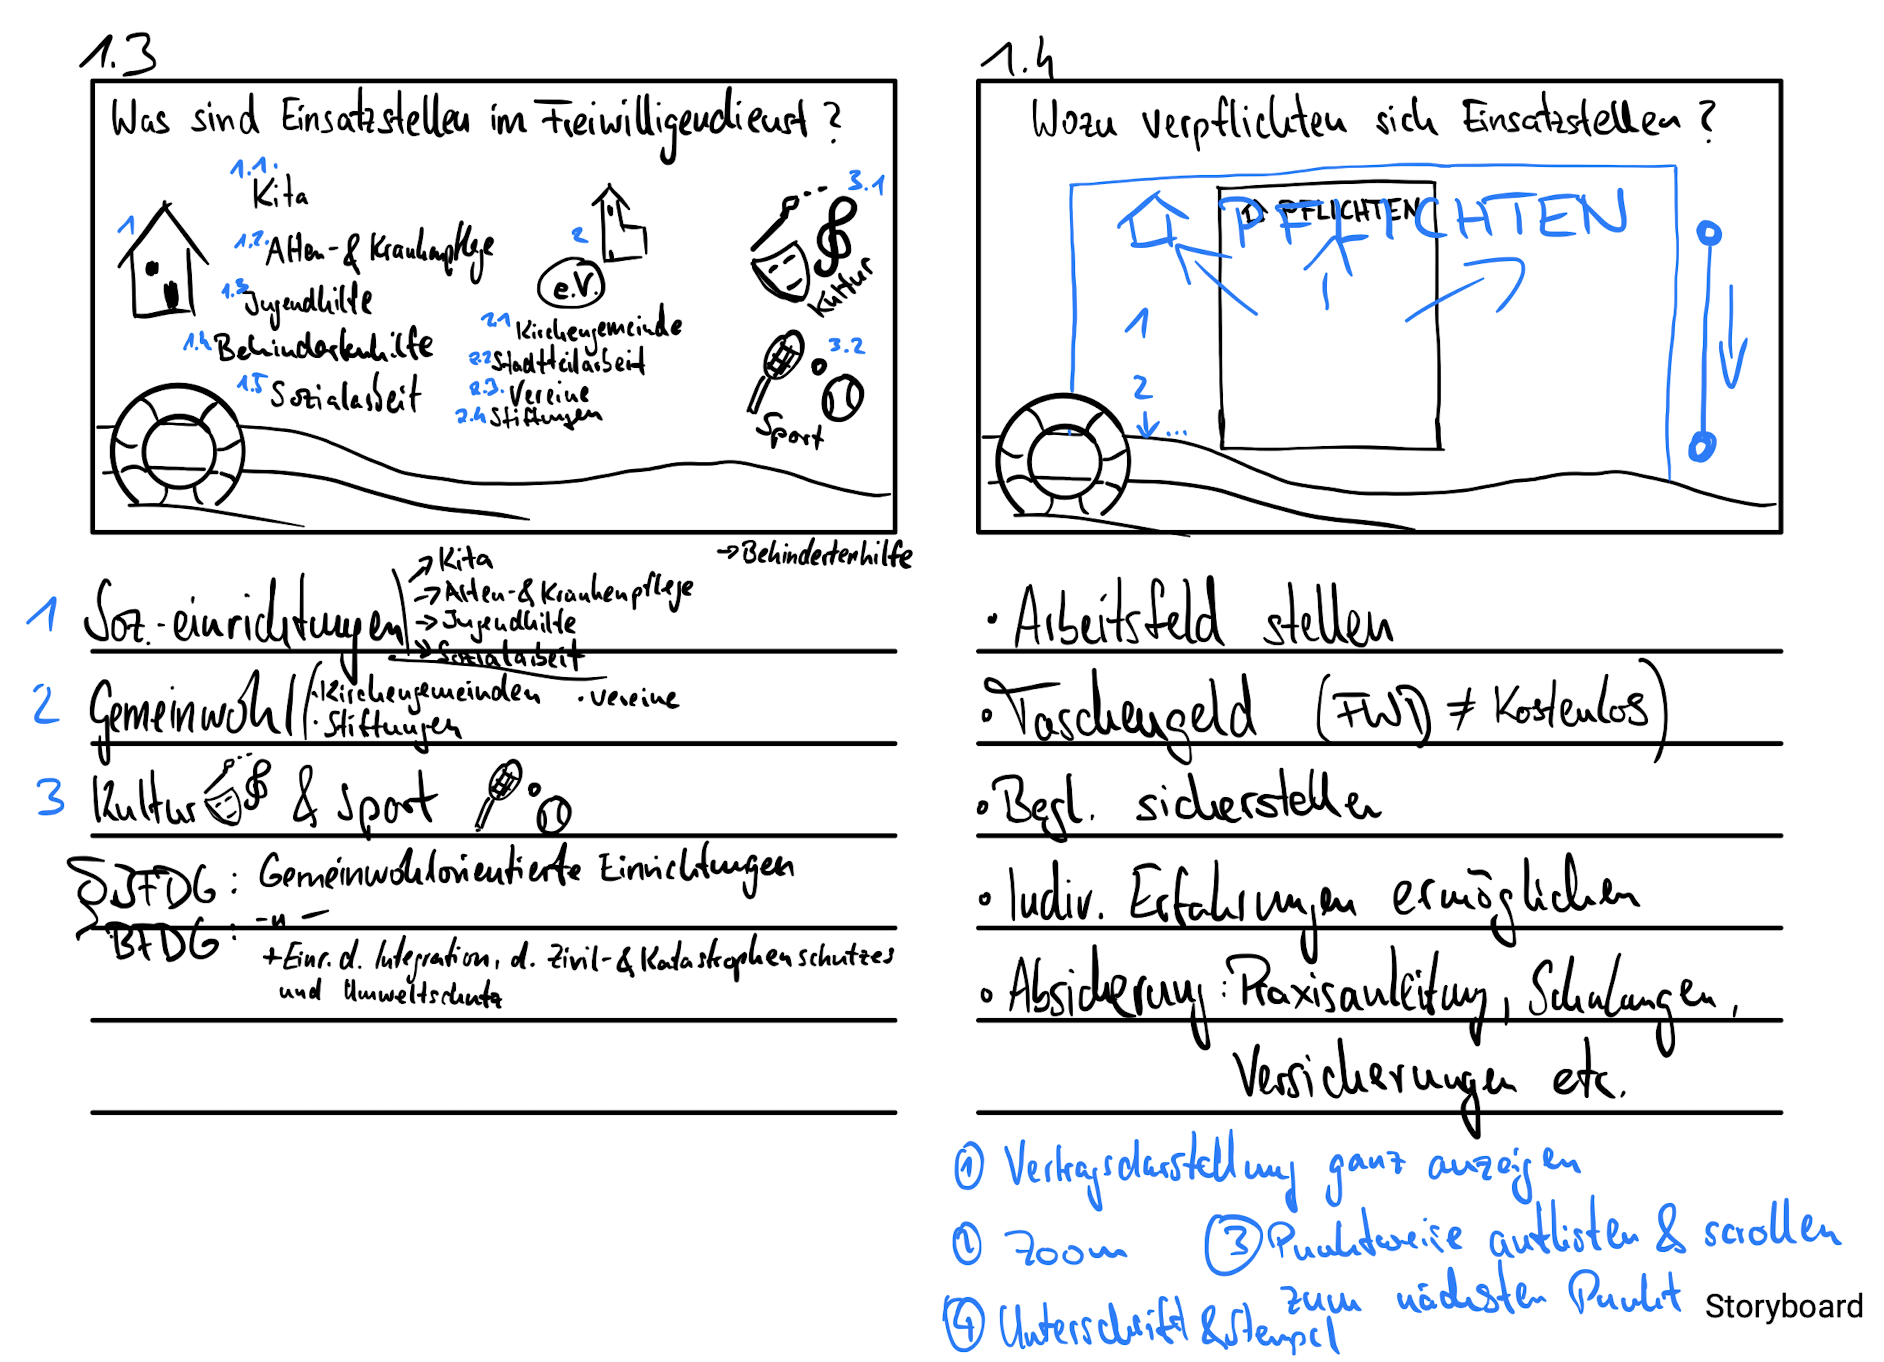 1.3
Was sind Einsatzstellen im Freiwilligendienst?
1
1.1.
Kita
1.2.
Alten- & Krankenpflege
1.3
Jugendhilfe
1.4
Behindertenhilfe
1.5
Sozialarbeit
2
e.V.
2.1 Kirchengemeinde
2.2 Stadtteilarbeit
2.3. Vereine
2.4 Stiftungen
3.1
Kultur
3.2
Sport
→ Behindertenhilfe
1 Soz.-einrichtungen
→ Kita
→ Alten-& Krankenpflege
→ Jugendhilfe
→ Sozialarbeit
2 Gemeinwohl
· Kirchengemeinden · Vereine
· Stiftungen
3 Kultur & Sport
§ JFDG: Gemeinwohlorientierte Einrichtungen
BFDG: -"-
+ Einr. d. Integration, d. Zivil-& Katastrophenschutzes
und Umweltschutz
1.4
Wozu verpflichten sich Einsatzstellen?
PFLICHTEN
PFLICHTEN
1
2
...
• Arbeitsfeld stellen
• Taschengeld (FWD ≠ Kostenlos)
• Begl. sicherstellen
• Indiv. Erfahrungen ermöglichen
• Absicherung: Praxisanleitung, Schulungen,
Versicherungen etc.
① Vertragsdarstellung ganz anzeigen
② Zoom ③ Punktweise auflisten & scrollen
zum nächsten Punkt
④ Unterschrift & Stempel
Storyboard